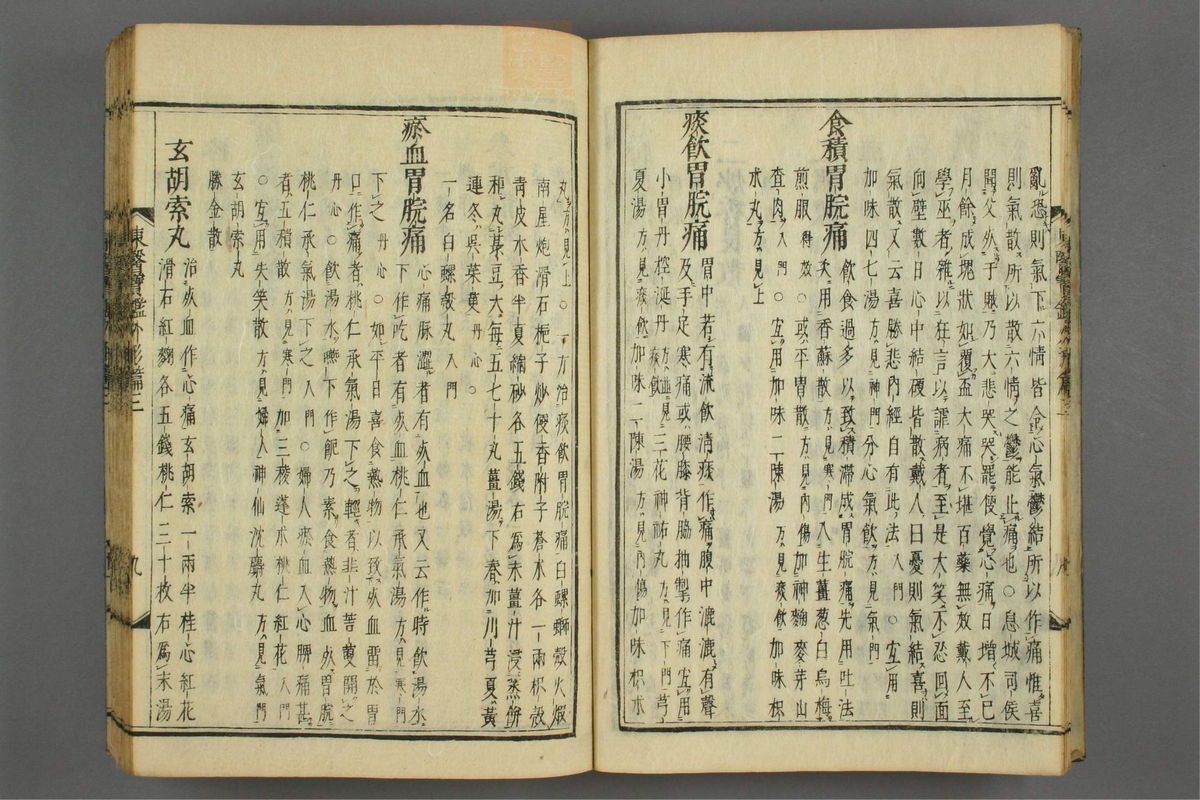 亂恐則氣下六情皆令心氣鬱結所以作痛惟喜
則氣散所以散六情之鬱能止痛也○息城司侯
聞父死于賊乃大悲哭哭罷便覺心痛日增不已
月餘成塊狀如覆盃大痛不堪百藥無效戴人至
學巫者雜以狂言以謔病者至是大笑不忍回面
向壁數日心中結硬皆散戴人曰憂則氣結喜則
氣散又云喜勝悲內經自有此法入門○宜用
加味四七湯方見神門分心氣飲方見氣門
食積胃脘痛
飲食過多以致積滯成胃脘痛先用吐法
次用香蘇散方見寒門入生薑葱白烏梅
煎服得效○或平胃散方見內傷加神麴麥芽山
査肉入門○宜用加味二陳湯方見痰飲加味枳
朮丸方見上
痰飲胃脘痛
胃中若有流飲淸痰作痛腹中漉漉有聲
及手足寒痛或腰膝背脇抽掣作痛宜用
小胃丹控涎丹方並見痰飲三花神祐丸方見下門芎
夏湯方見痰飲加味二陳湯方見內傷加味枳朮
丸方見上○一方治痰飲胃脘痛白螺螄殼火煅
南星炮滑石梔子炒便香附子蒼朮各一兩枳殼
靑皮木香半夏縮砂各五錢右爲末薑汁浸蒸餠
和丸菉豆大每五七十丸薑湯下春加川芎夏黃
連冬吳茱萸丹心○
一名白螺殼丸入門
瘀血胃脘痛
心痛脉澀者有死血也又云作時飲湯水
下作吃者有死血桃仁承氣湯方見寒門
下之丹心○如平日喜食熱物以致死血留於胃
口作痛者桃仁承氣湯下之輕者韭汁苦蔞開之
丹心○飲湯水嚥下作呃乃素食熱物血死胃脘
桃仁承氣湯下之入門○婦人瘀血入心脾痛甚
者五積散方見寒門加三稜蓬朮桃仁紅花入門
○宜用失笑散方見婦人神仙沈麝丸方見氣門
玄胡索丸
勝金散
玄胡索丸
治死血作心痛玄胡索一兩半桂心紅花
滑石紅麴各五錢桃仁三十枚右爲末湯
東醫寶鑑外形篇三
九